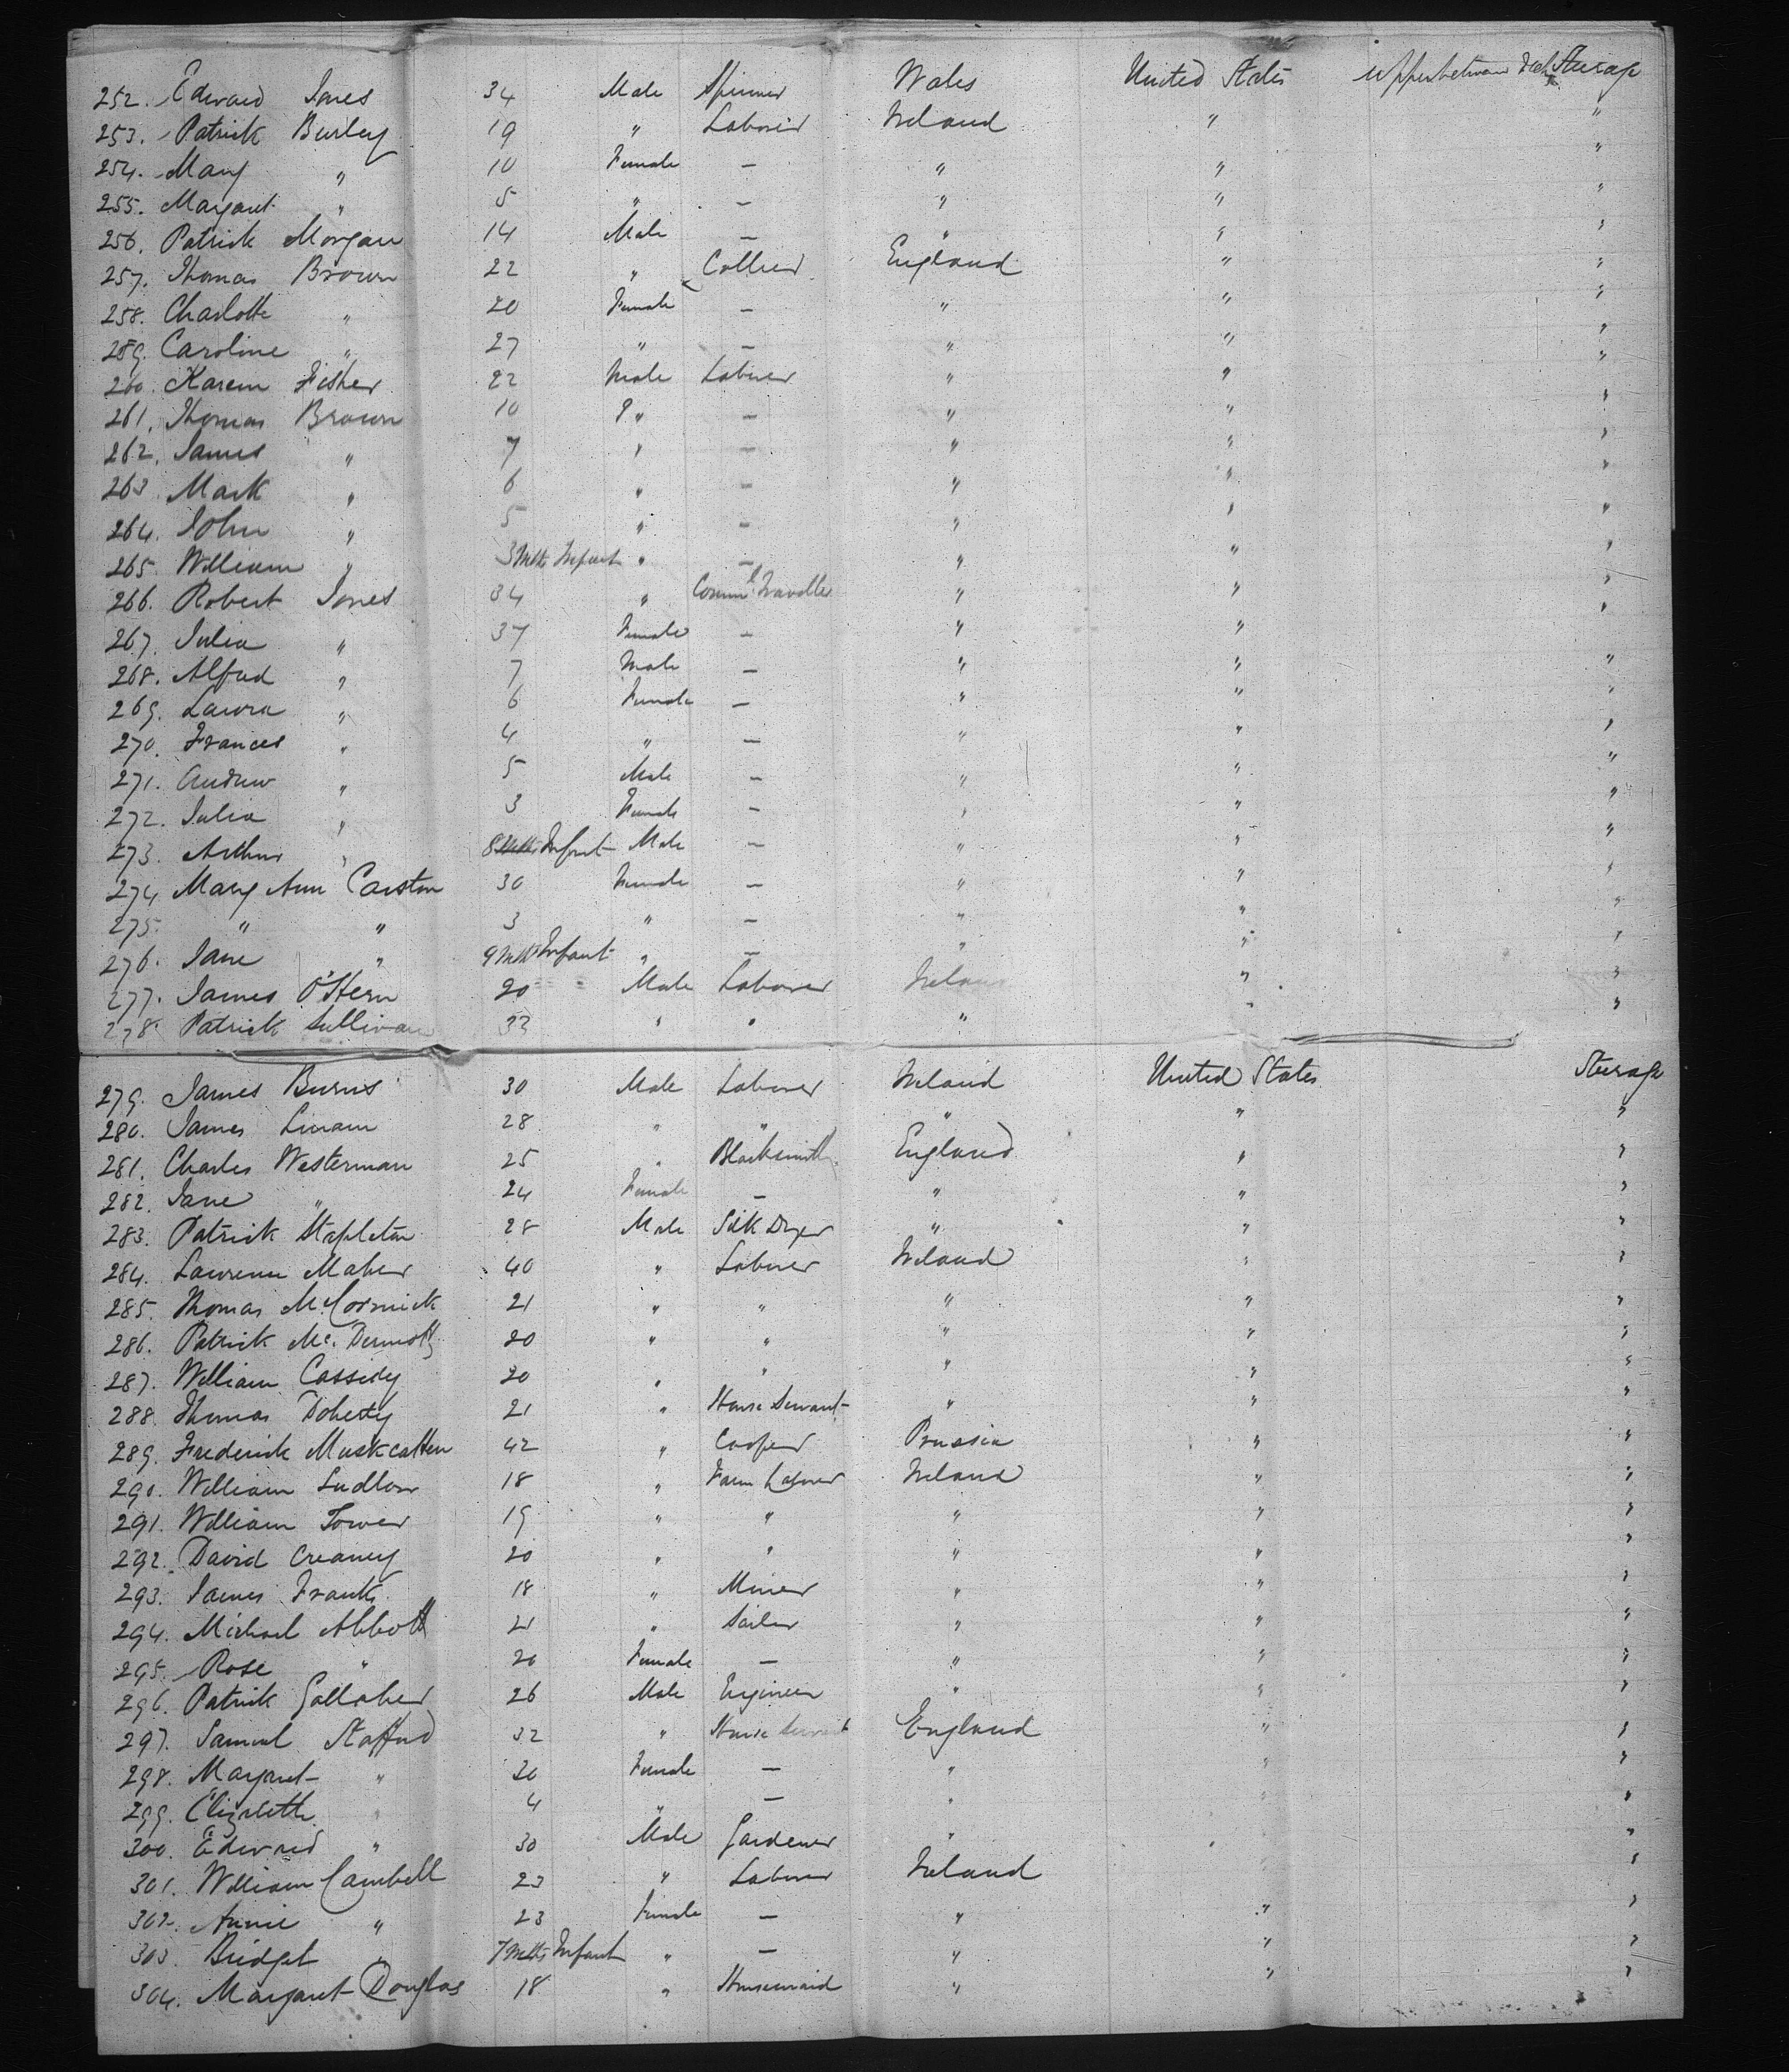 252. Edward Jones 34 Male Spinner Wales United States Upper between Deck Steerage
253. Patrick Burley 19 " Laborer Ireland " "
254. Mary " 10 Female — " " "
255. Margaret " 5 " — " " "
256. Patrick Morgan 14 Male — " " "
257. Thomas Brown 22 " Collier England " "
258. Charlotte " 20 Female — " " "
259. Caroline " 27 " — " " "
260. Karem Fisher 22 Male Laborer " " "
261. Thomas Brown 10 " — " " "
262. James " 7 " — " " "
263 Mark " 6 " — " " "
264. John " 5 " — " " "
265. William " 3 Mths Infant " — " " "
266. Robert Jones 34 " Comml Traveller " " "
267. Julia " 37 Female — " " "
268. Alfred " 7 Male — " " "
269. Laura " 6 Female — " " "
270. Frances " 4 " — " " "
271. Andrew " 5 Male — " " "
272. Julia " 3 Female — " " "
273. Arthur " 8 Mths Infant Male — " " "
274 Mary Ann Carston 30 Female — " " "
275 " " 3 " — " " "
276. Jane " 9 Mths Infant " — " " "
277. James O'Hern 20 Male Laborer Ireland " "
278. Patrick Sullivan 33 " " " " "
279. James Burns 30 Male Laborer Ireland United States Steerage
280. James Linam 28 " " " " "
281. Charles Westerman 25 " Blacksmith England " "
282. Jane " 24 Female — " " "
283. Patrick Stapleton 28 Male Silk Dyer " " "
284. Lawrence Maher 40 " Laborer Ireland " "
285. Thomas McCormick 21 " " " " "
286. Patrick Mc. Dermott 20 " " " " "
287. William Cassidy 20 " " " " "
288. Thomas Doherty 21 " House Servant " " "
289. Frederick Muskcatten 42 " Cooper Prussia " "
290. William Ludlow 18 " Farm Laborer Ireland " "
291. William Tower 19 " " " " "
292. David Creaney 20 " " " " "
293. James Franks 18 " Miner " " "
294. Michael Abbott 21 " Sailor " " "
295. Rose " 20 Female — " " "
296. Patrick Gallaher 26 Male Engineer " " "
297. Samuel Stafford 32 " House Servant England " "
298. Margaret " 30 Female — " " "
299. Elizabeth " 4 " — " " "
300. Edward " 30 Male Gardener " " "
301. William Cambell 23 " Laborer Ireland " "
302. Annie " 23 Female — " " "
303. Bridget " 7 Mths Infant " — " " "
304. Margaret Douglas 18 " Housemaid " " "